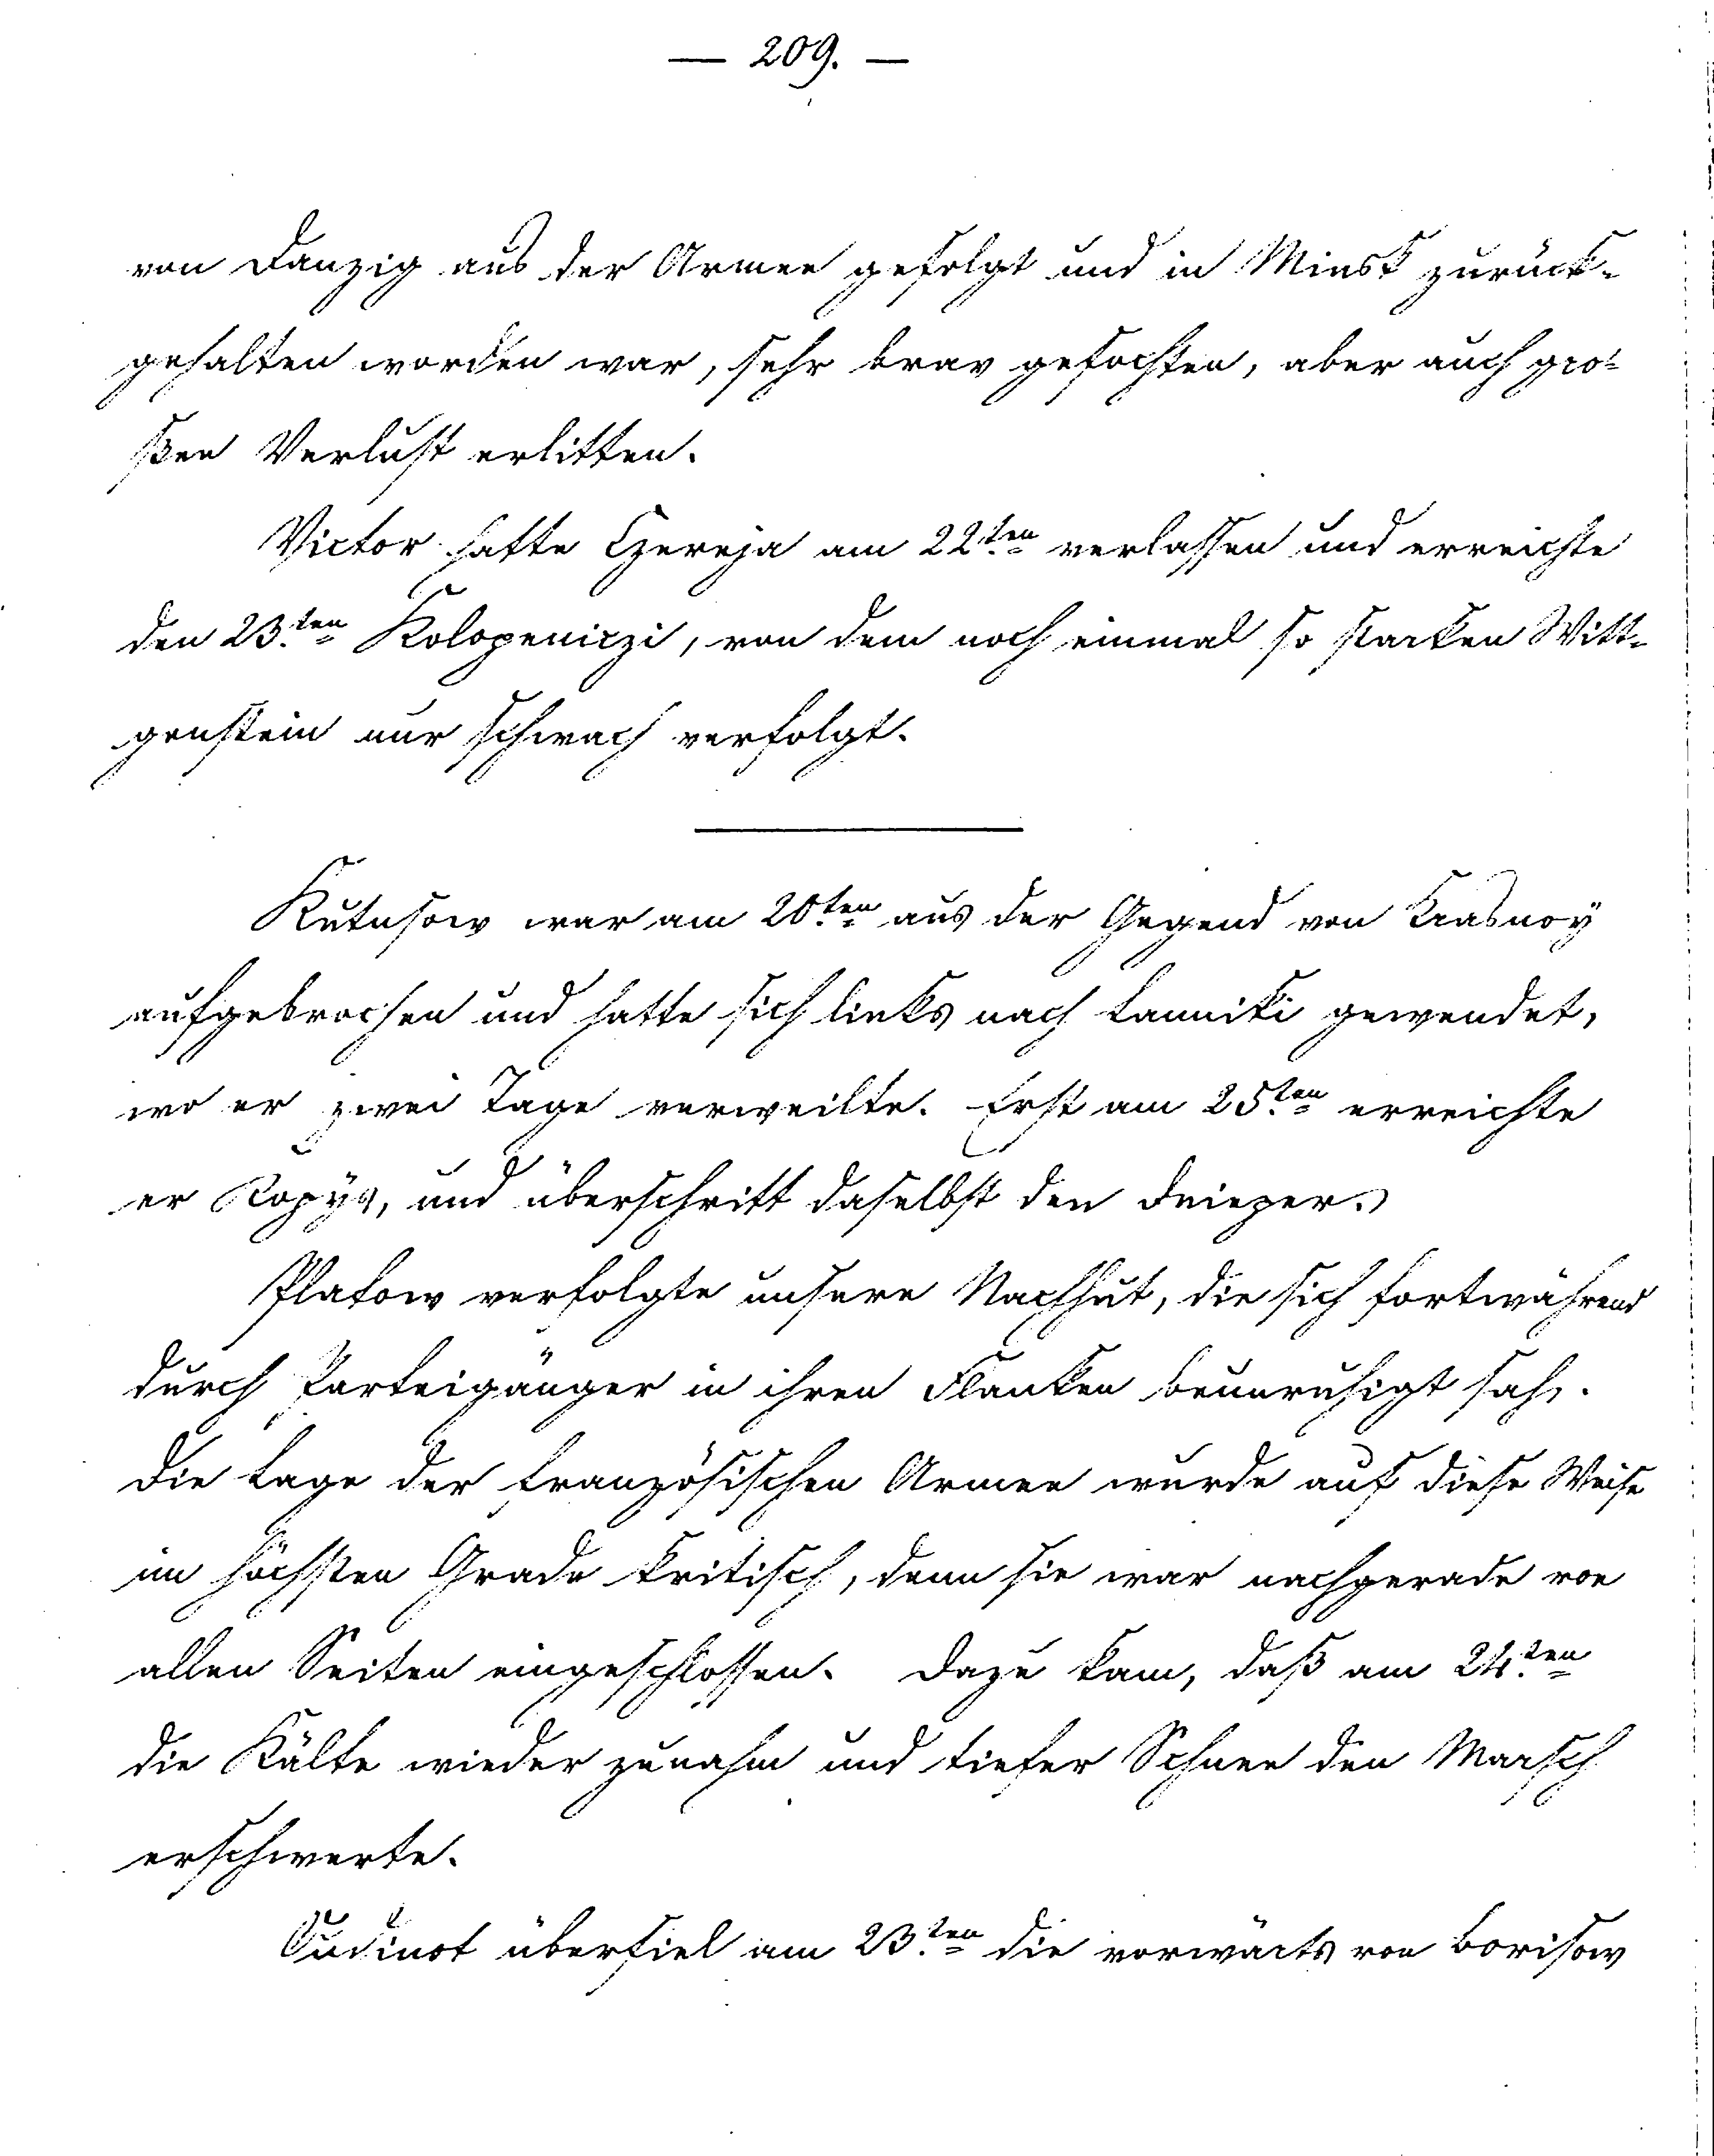 — 209. —
von Danzig aus der Armee gefolgt und in Minsk zurück-
gehalten worden war, sehr brav gefochten, aber auch gro-
ßen Verlust erlitten.
Victor hatte Czereja am 22ten verlassen und erreichte
den 23.ten Kolopeniczi, von dem noch einmal so starken Witt-
genstein nur schwach verfolgt.
Kutusow war am 20.ten aus der Gegend von Krasnoy
aufgebrochen und hatte sich links nach Lanniki gewendet,
wo er zwei Tage verweilte. Erst am 25.ten erreichte
er Kopys, und überschritt daselbst den Dnieper.
Platow verfolgte unsere Nachhut, die sich fortwährend
durch Parteigänger in ihren Flanken beunruhigt sah.
Die Lage der französischen Armee wurde auf diese Weise
im höchsten Grade kritisch, denn sie war nachgerade von
allen Seiten eingeschlossen. Dazu kam, daß am 24.ten
die Kälte wieder zunahm und tiefer Schnee den Marsch
erschwerte.
Oudinot überfiel am 23.ten die vorwärts von Borisow